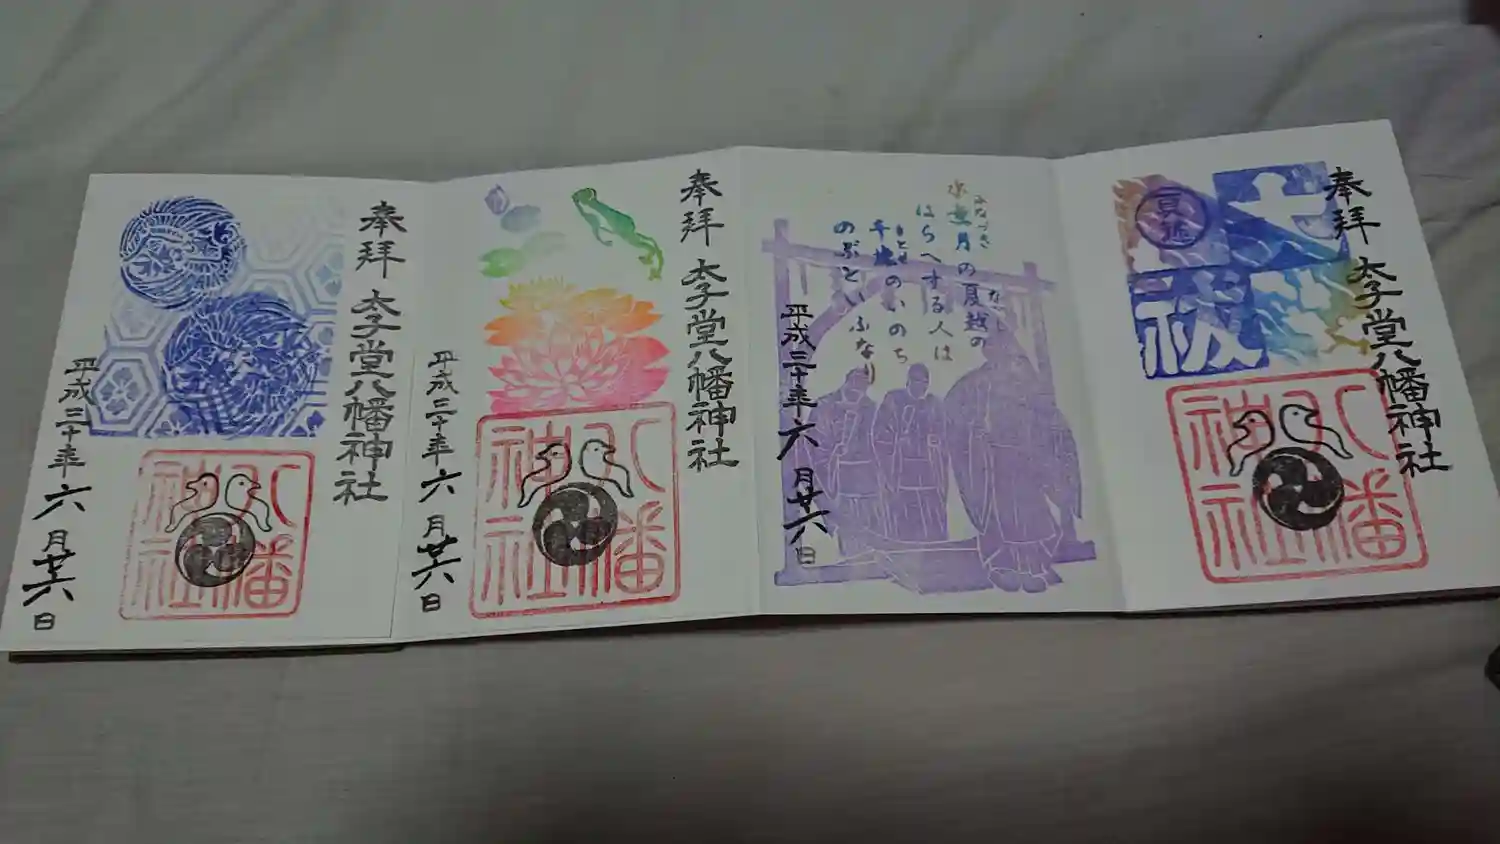 奉拝 太子堂八幡神社
夏越
大祓
八幡
神社
水無月の夏越の
みなづき
なごし
はらへする人は
千歳のいのち
ちとせ
のぶといふなり
平成三十年六月廿六日
奉拝 太子堂八幡神社
八幡
神社
平成三十年六月廿六日
奉拝 太子堂八幡神社
八幡
神社
平成三十年六月廿六日